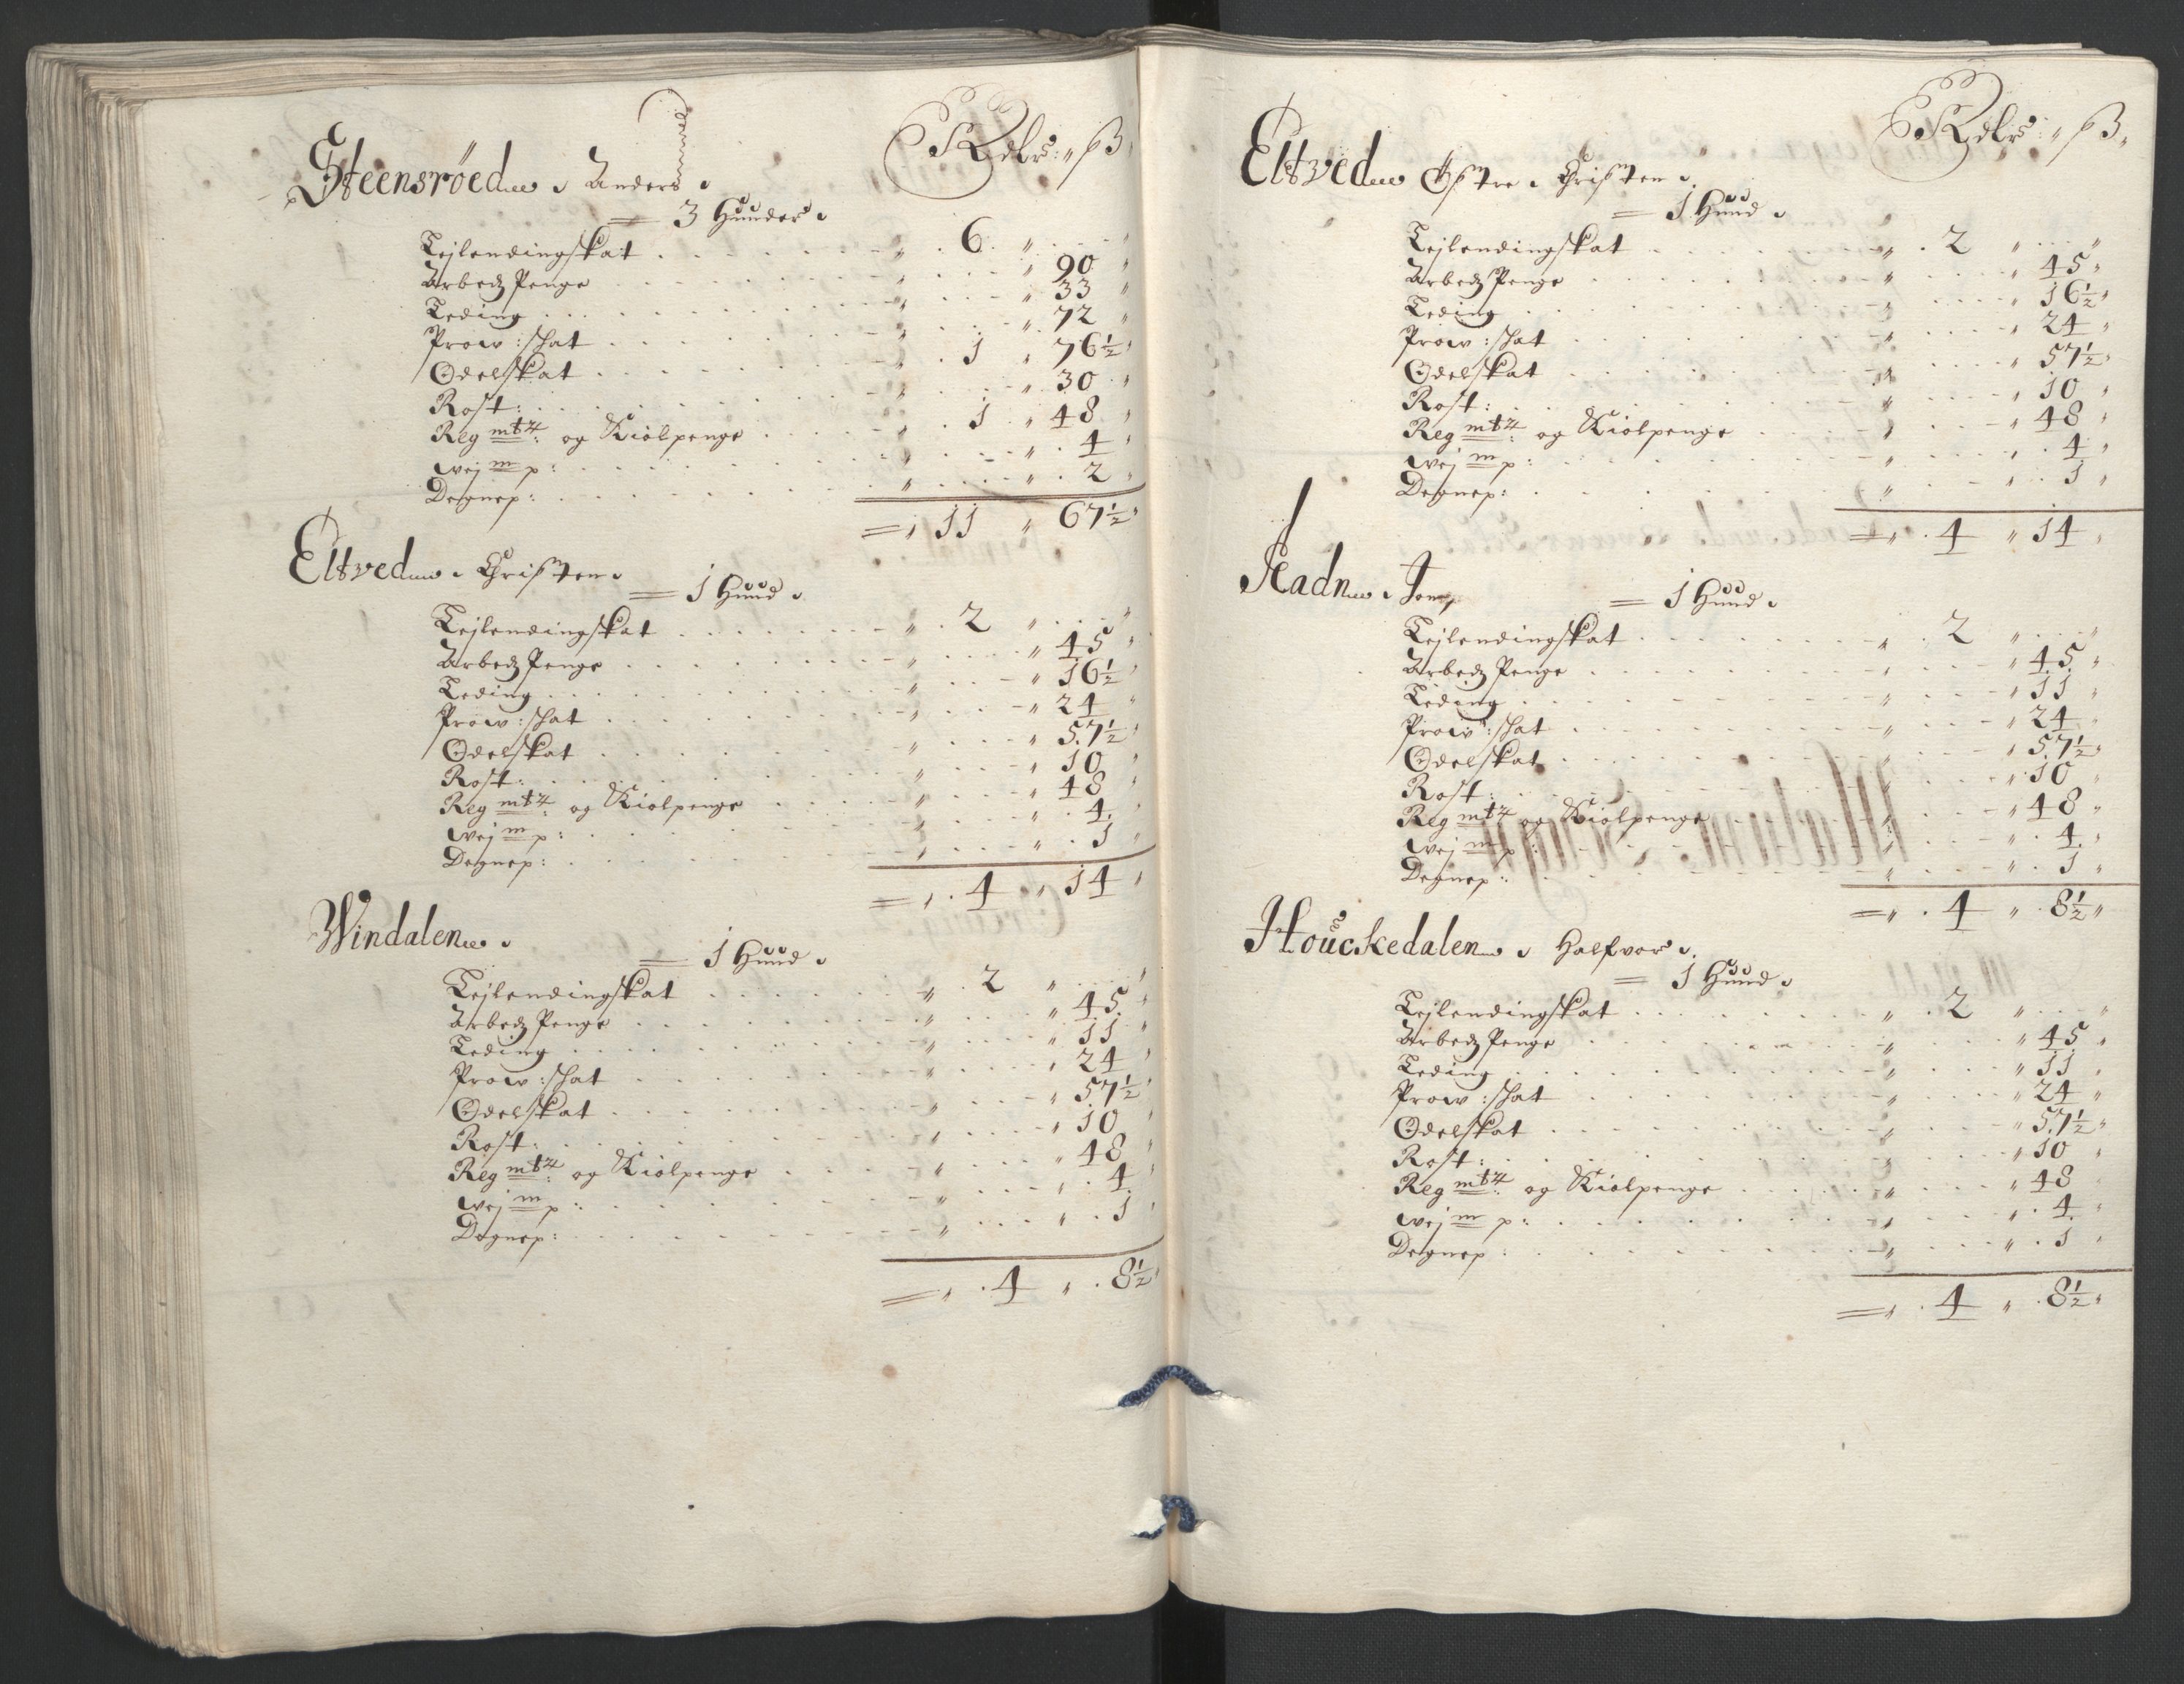 Rdlr: ß
Steensröed Anders
3 Huuder
Leylendingskat 6
Arbedz Penge 90
Leding 33
Prow: skat 72
Odelskat 1 76½
Rost: 30
Reg mtz: og Kiolpenge 1 48
wej m p: 4
Degnep: 2
= 11 67½
Eltved Christen
= 1 Huud
Leylendingskat 2
Arbedz Penge 45
Leding 16½
Prow: skat 24
Odelskat 57½
Rost: 10
Reg mtz: og Kiolpenge 48
wej m p: 4
Degnep: 1
= 4 14
Windalen
= 1 Huud
Leylendingskat 2
Arbedz Penge 45
Leding 11
Prow: skat 24
Odelskat 57½
Rost: 10
Reg mtz: og Kiolpenge 48
wej m p: 4
Degnep: 1
= 4 8½
Rdlr: ß
Eltved Östre Christen
= 1 Huud
Leylendingskat 2
Arbedz Penge 45
Leding 16½
Prow: skat 24
Odelskat 57½
Rost: 10
Reg mtz: og Kiolpenge 48
wej m p: 4
Degnep: 1
= 4 14
= 1 Huud
Leylendingskat 2
Arbedz Penge 45
Leding 11
Prow: skat 24
Odelskat 57½
Rost: 10
Reg mtz: og Kiolpenge 48
wej m p: 4
Degnep: 1
= 4 8½
Houckedalen Halfvor
= 1 Huud
Leylendingskat 2
Arbedz Penge 45
Leding 11
Prow: skat 24
Odelskat 57½
Rost: 10
Reg mtz: og Kiolpenge 48
wej m p: 4
Degnep: 1
= 4 8½